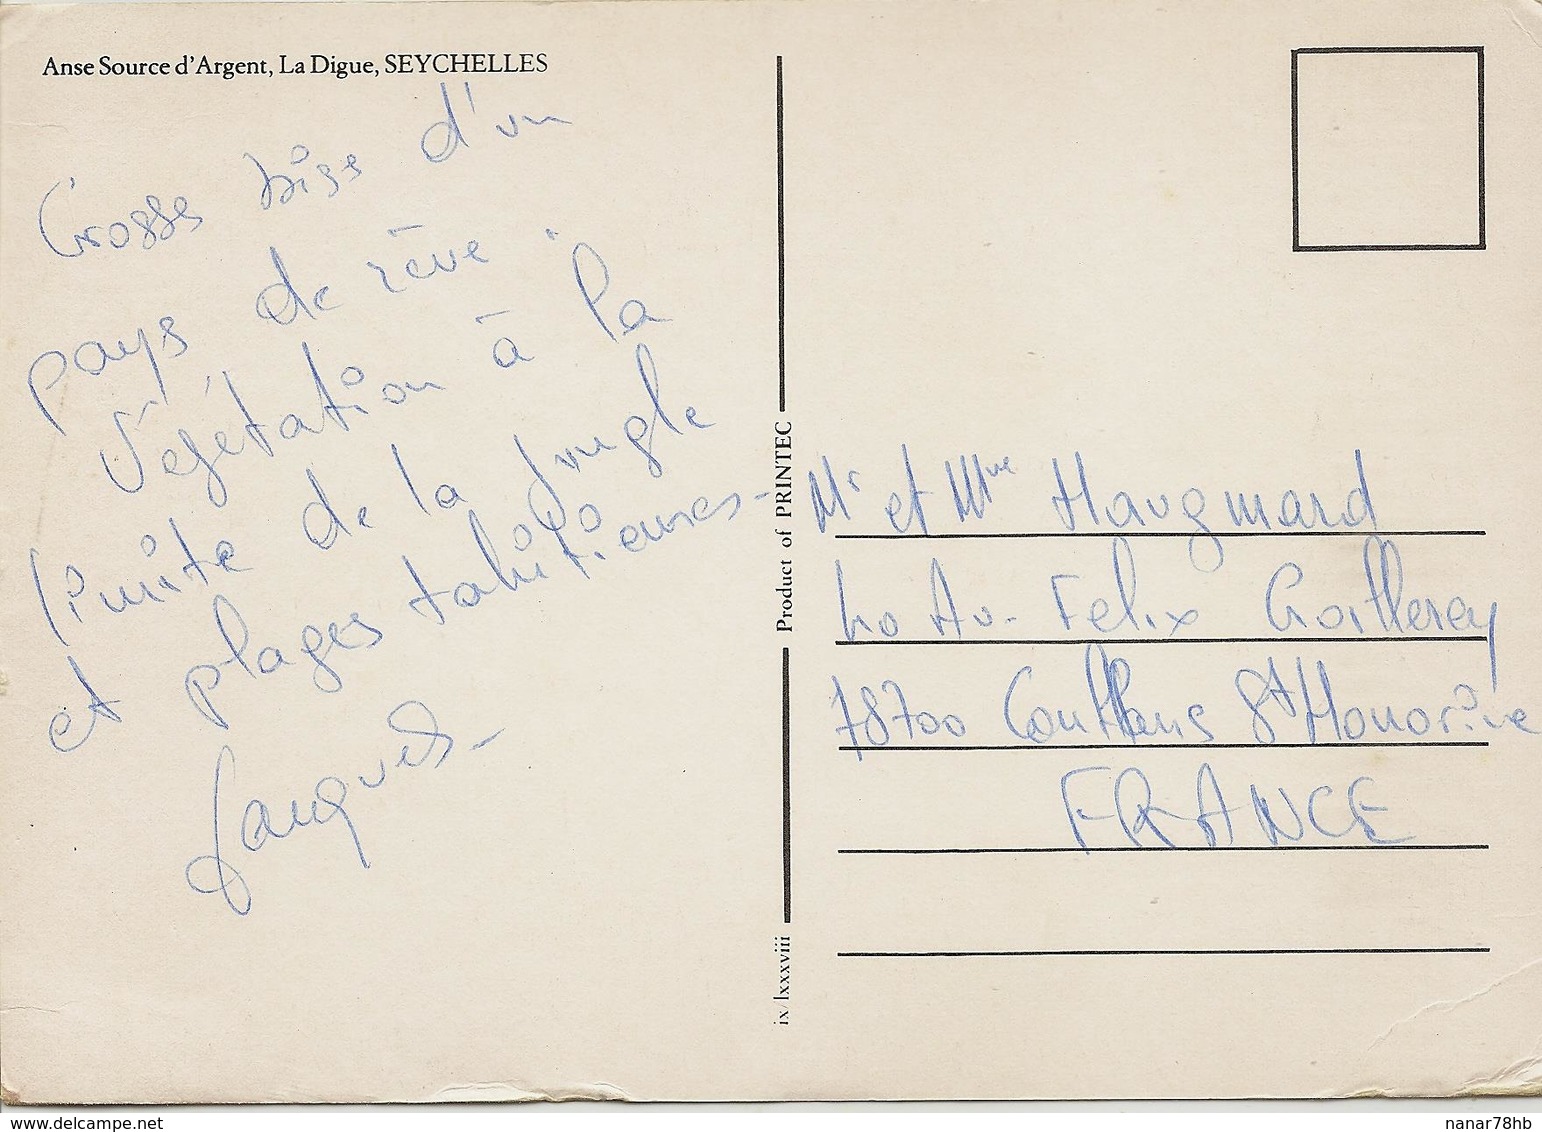 Anse Source d'Argent, La Digue, SEYCHELLES
Grosse bise d'un
pays de rêve.
Végétation à la
limite de la jungle
et plages tahitiennes -
Jacques -
Product of PRINTEC
ix/lxxxviii
Mr et Mme Haugmard
40 Av. Felix
78700 Conflans St Honorine
FRANCE
delcampe.net
nanar78hb